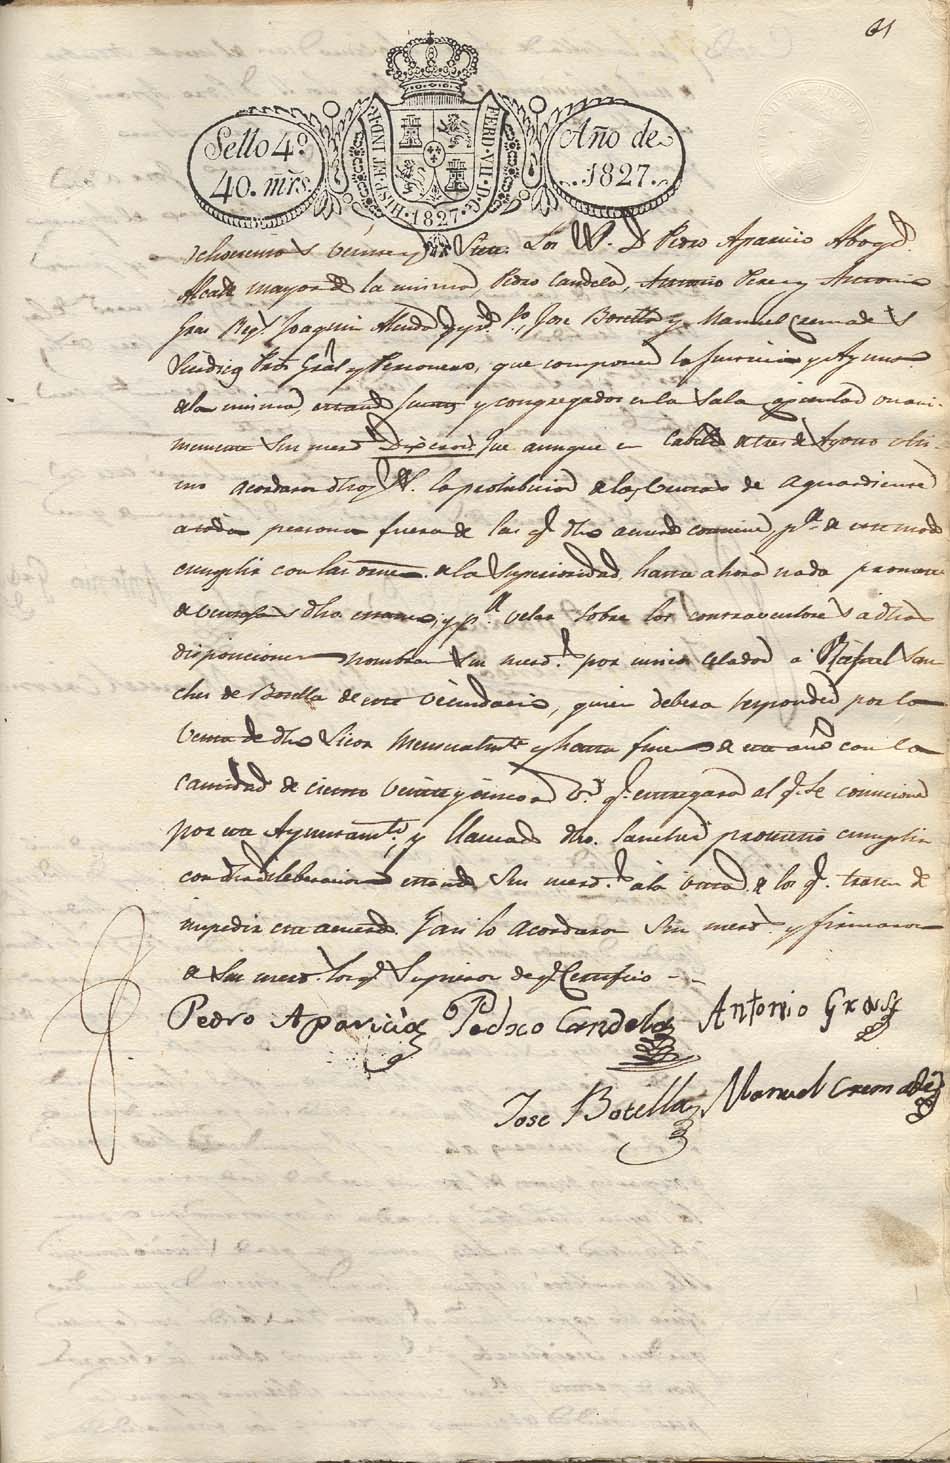 61
Sello 4º
40. mrs.
HISP. ET IND. R.
FERD. VII. D. G.
1827
Año de
1827.
ochocientos veinte y Siete. Los SS. D. Pedro Aparicio Abogd.
Alcalde mayor de la misma, Pedro Candela, Antonio Perez y Antonio
Gras Regs. Joaquin
Jose Botella y Manuel Cremades
Sindico Pror. Gral y Personero, que componen la Justicia y Aynto
de la misma, estando juntos y congregados en la Sala Capitular unani-
memente Sus mercs. Dixeron: Que aunque en Cabildo de tres de Agosto ulti-
mo acordaron dhos SS. la prohibicion de la Venta de aguardiente
a toda persona fuera de las q. dho acuerdo contiene, pa. de este modo
cumplir con las ordenes de la Superioridad, hasta ahora nada
y pa. velar sobre los contraventores a dhas
disposiciones nombran Sus mercs. por unico celador a Rafael San
chez de Botella de esta Vecindario, quien debera responder por la
Venta de dho Licor mensualmte. y hasta fines de este año con la
cantidad de ciento veinte y cinco rs. vn. q. entregara al q. se comisione
por este Ayuntamto. y llamado dho. Sanchez prometio cumplir
con dha deliberacion estando Sus mercs. á la mira de los q. traten de
impedir este acuerdo. Y asi lo acordaron Sus mercs. y firmaron
de Sus mercs. los q. Supieron de q. Certifico
Pedro Aparicio Pedro Candela Antonio Gras
Jose Botella Manuel Cremades